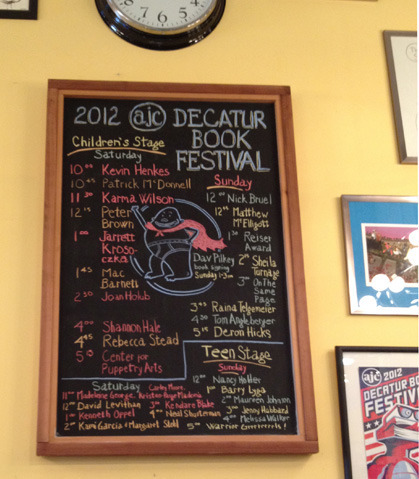 2012 ajc DECATUR
BOOK
FESTIVAL
Children's Stage
Saturday
10:00 Kevin Henkes
10:45 Patrick McDonnell
11:30 Karma Wilson
12:15 Peter
Brown
1:00 Jarrett
Kroso-
czka
1:45 Mac
Barnett
2:30 Joan Holub
4:00 Shannon Hale
4:45 Rebecca Stead
5:30 Center for
Puppetry Arts
Dav Pilkey
book signing
Sunday 1-3pm
Sunday
12:00 Nick Bruel
12:45 Matthew
McElligott
1:30 Reiser
Award
2:15 Sheila
Turnage
3:00 On The
Same
Page
3:45 Raina Telgemeier
4:30 Tom Angleberger
5:15 Deron Hicks
Teen Stage
Saturday
11:00 Madeleine George, Kristen-Paige Madonia
12:00 David Levithan
1:00 Kenneth Oppel
2:00 Kami Garcia & Margaret Stohl
3:00 Kendare Blake
4:00 Neal Shusterman
5:00 Warrior Grrrrrrrls!
Sunday
12:00 Nancy
1:00 Barry Lyga
2:00 Maureen Johnson
3:00 Jenny Hubbard
4:00 Melissa Walker
ajc 2012
DECATUR BO
FESTIV